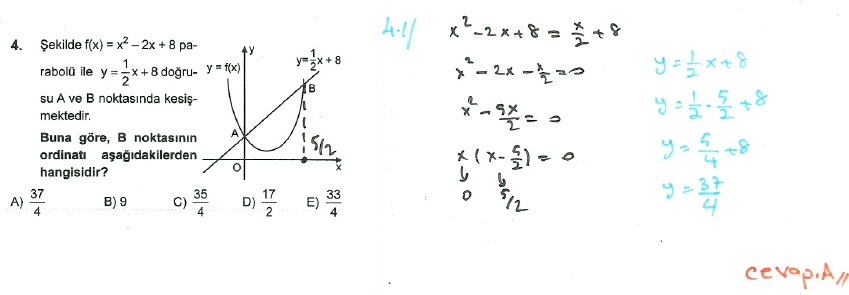 4. Şekilde f(x) = x² – 2x + 8 pa-
rabolü ile y = 1/2 x + 8 doğru-
su A ve B noktasında kesiş-
mektedir.
Buna göre, B noktasının
ordinatı aşağıdakilerden
hangisidir?
y
y = f(x)
y = 1/2 x + 8
B
A
5/2
O
x
A) 37/4 B) 9 C) 35/4 D) 17/2 E) 33/4
4-1/
x² - 2x + 8 = x/2 + 8
x² - 2x - x/2 = 0
x² - 5x/2 = 0
x (x - 5/2) = 0
0 5/2
y = 1/2 x + 8
y = 1/2 · 5/2 + 8
y = 5/4 + 8
y = 37/4
cevap.A//